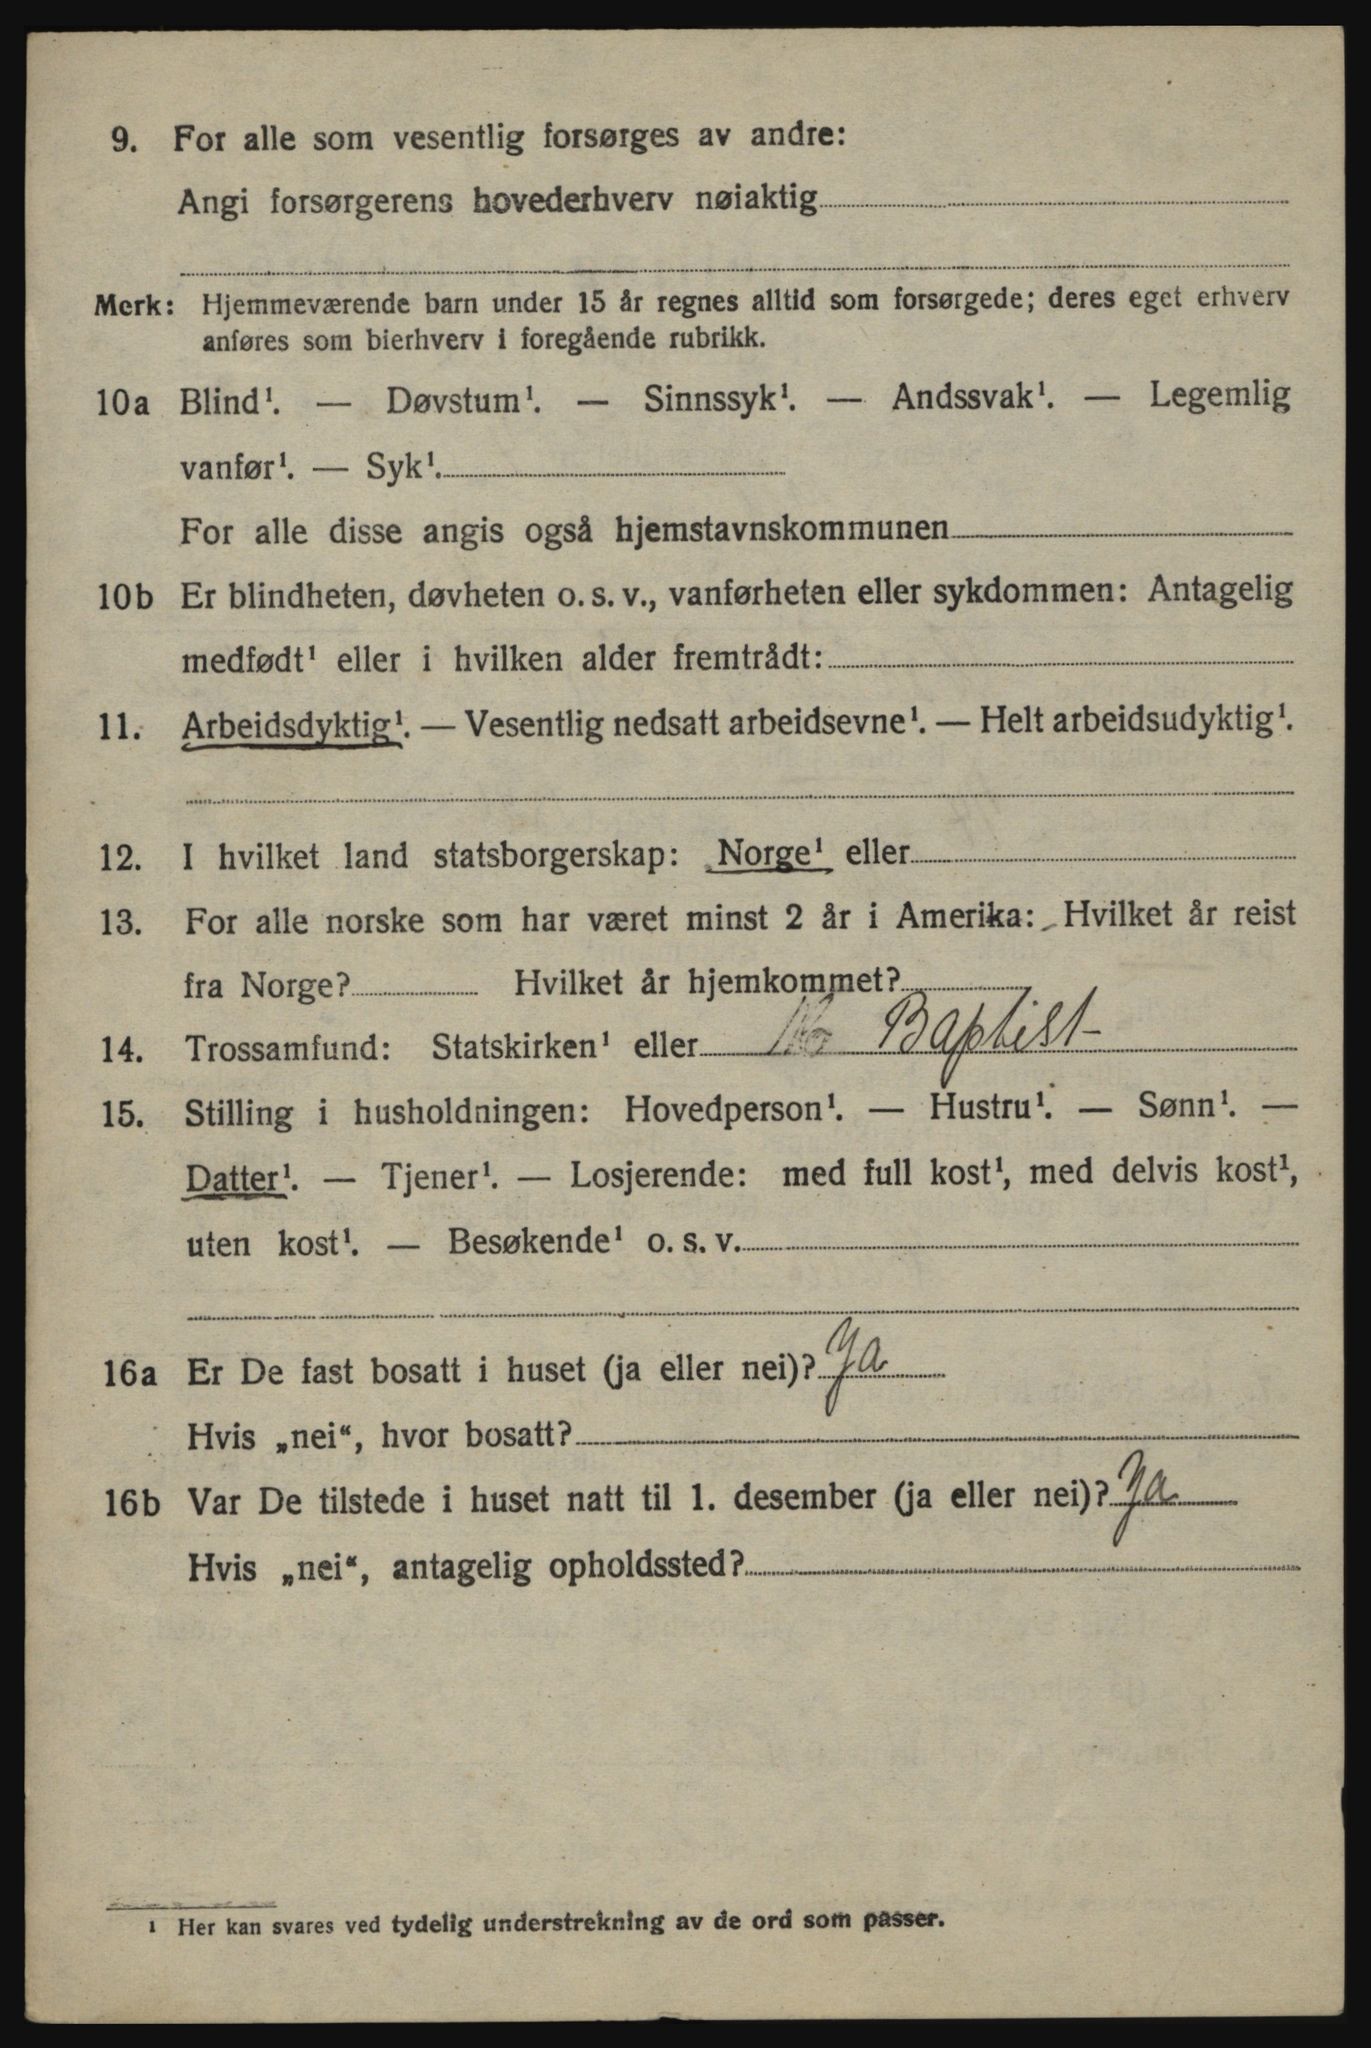 9. For alle som vesentlig forsørges av andre:
Angi forsørgerens hovederhverv nøiaktig
Merk: Hjemmeværende barn under 15 år regnes alltid som forsørgede; deres eget erhverv
anføres som bierhverv i foregående rubrikk.
10a Blind¹. — Døvstum¹. — Sinnssyk¹. — Andssvak¹. — Legemlig
vanfør¹. — Syk¹.
For alle disse angis også hjemstavnskommunen
10b Er blindheten, døvheten o. s. v., vanførheten eller sykdommen: Antagelig
medfødt¹ eller i hvilken alder fremtrådt:
11. Arbeidsdyktig¹. — Vesentlig nedsatt arbeidsevne¹. — Helt arbeidsudyktig¹.
12. I hvilket land statsborgerskap: Norge¹ eller
13. For alle norske som har været minst 2 år i Amerika: Hvilket år reist
fra Norge? Hvilket år hjemkommet?
14. Trossamfund: Statskirken¹ eller Baptist
15. Stilling i husholdningen: Hovedperson¹. — Hustru¹. — Sønn¹. —
Datter¹. — Tjener¹. — Losjerende: med full kost¹, med delvis kost¹,
uten kost¹. — Besøkende¹ o. s. v.
16a Er De fast bosatt i huset (ja eller nei)? Ja
Hvis „nei“, hvor bosatt?
16b Var De tilstede i huset natt til 1. desember (ja eller nei)? Ja
Hvis „nei“, antagelig opholdssted?
¹ Her kan svares ved tydelig understrekning av de ord som passer.